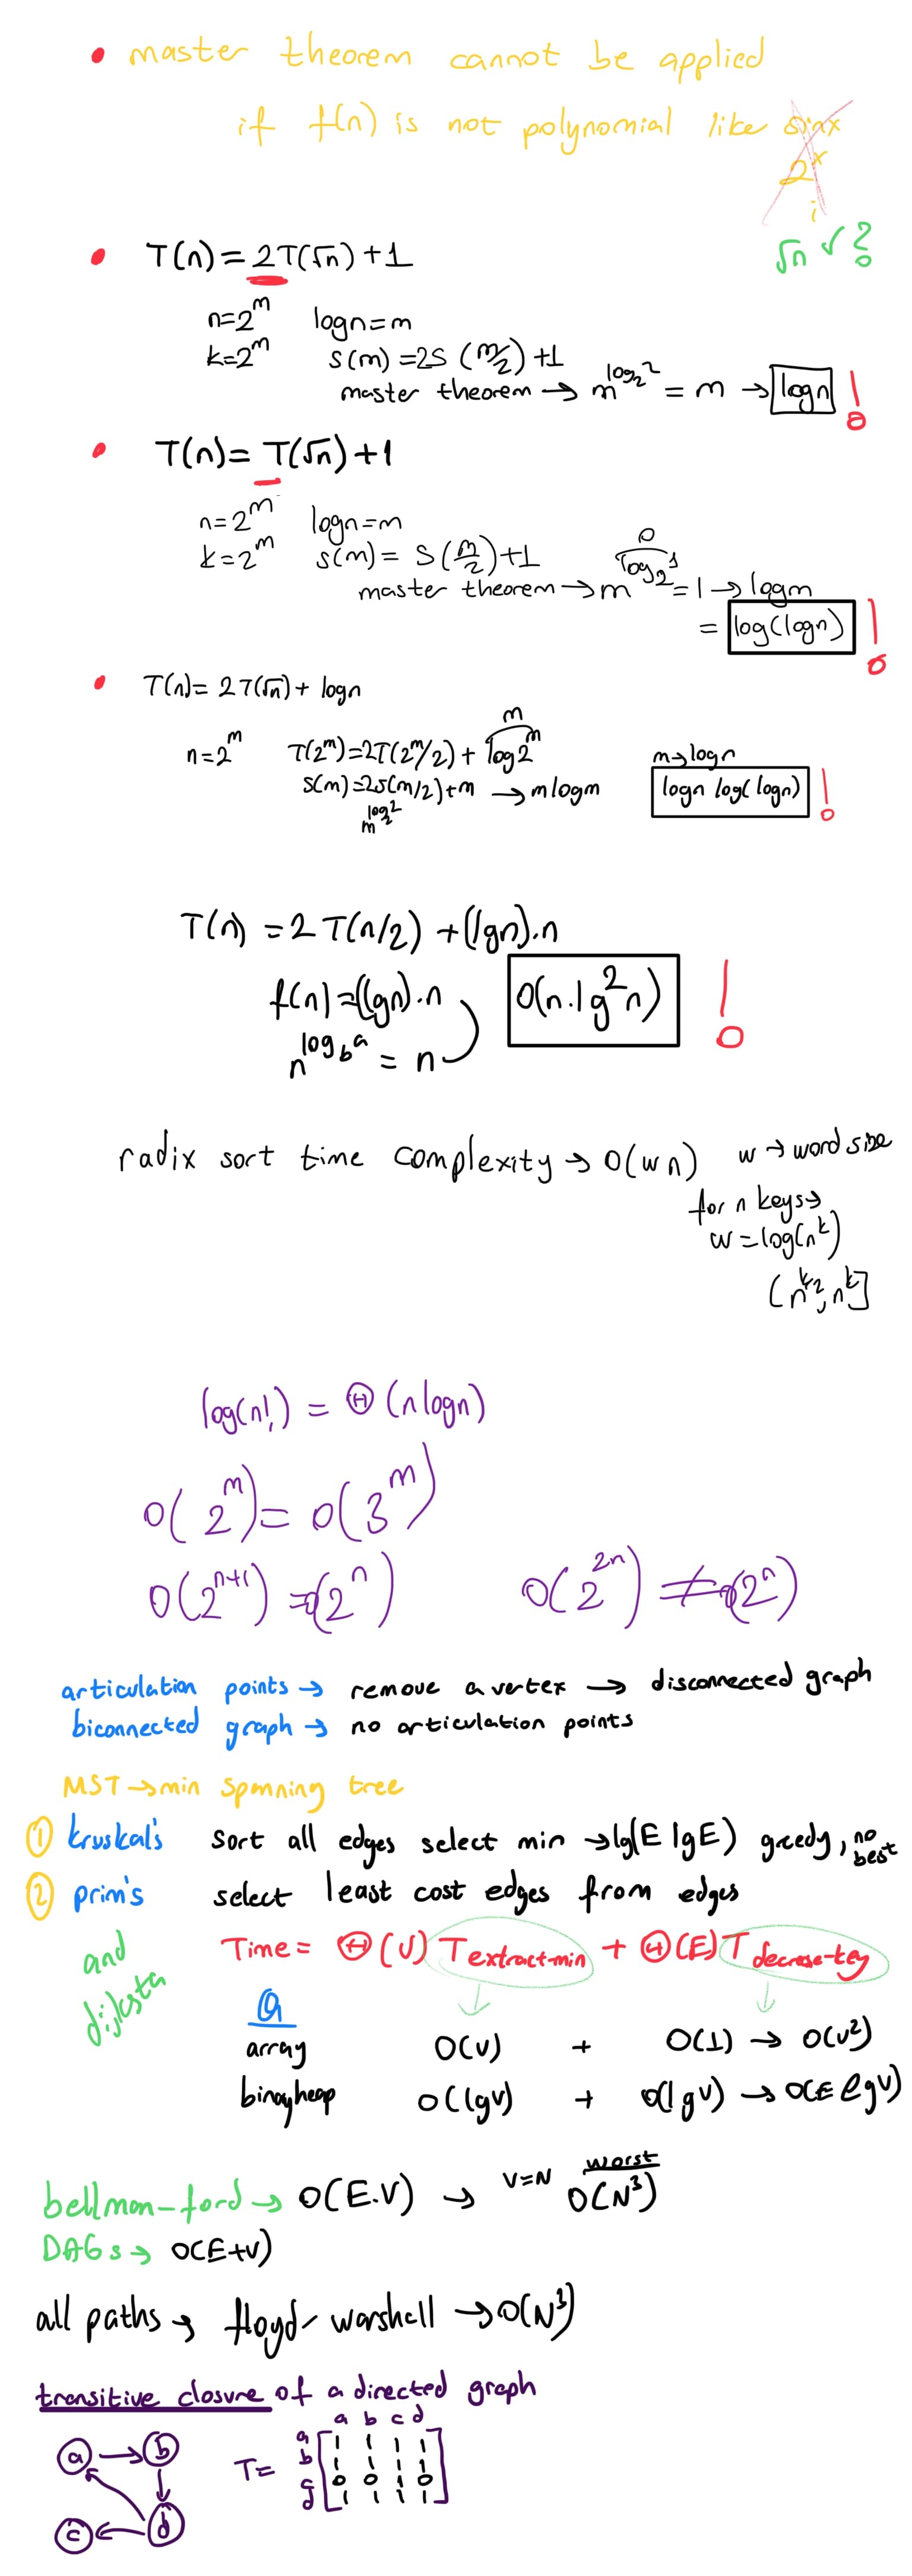 • master theorem cannot be applied
if f(n) is not polynomial like sinx
2^x
i
√n ✓ ?
• T(n) = 2T(√n) + 1
n=2^m logn=m
k=2^m s(m) = 2S (m/2) +1
master theorem → m^log₂2 = m → logn !
• T(n) = T(√n) + 1
n=2^m logn=m
k=2^m s(m) = S(m/2)+1 0
master theorem → m^log₂1 = 1 → logm
= log(logn) !
• T(n) = 2T(√n) + logn
m
n=2^m T(2^m)=2T(2^m/2) + log2^m m→logn
s(m)=2s(m/2)+m → mlogm logn log(logn) !
m^log₂2
T(n) = 2T(n/2) + (lgn).n
f(n) = (lgn).n O(n.lg²n) !
n^log_b a = n
radix sort time complexity → O(wn) w → word size
for n keys →
w = log(n^k)
(n^k/2, n^k]
log(n!) = Θ(nlogn)
O(2^m) = O(3^m)
O(2^n+1) = O(2^n) O(2^2n) ≠ O(2^n)
articulation points → remove a vertex → disconnected graph
biconnected graph → no articulation points
MST → min spanning tree
① kruskal's sort all edges select min → lg(E lgE) greedy, no best
② prim's select least cost edges from edges
and dijksta
Time = Θ(V) T extract-min + Θ(E) T decrease-key
Q
array O(V) + O(1) → O(v²)
binayheap O(lgV) + O(lgV) → O(E lgV)
bellman-ford → O(E.V) → V=N worst O(N³)
DAGs → O(E+V)
all paths → floyd-warshall → O(N³)
transitive closure of a directed graph
a b c d
a b T= a 1 1 1 1
b 1 1 1 1
c 0 0 1 0
c d d 1 1 1 1